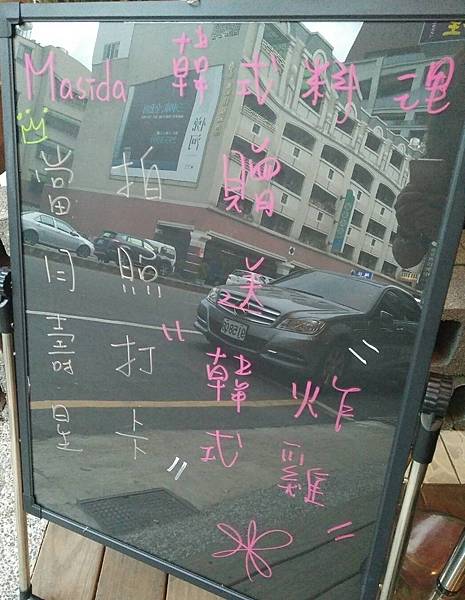 Masida 韓式料理
當月壽星
拍照打卡
贈送
"韓式
炸雞"